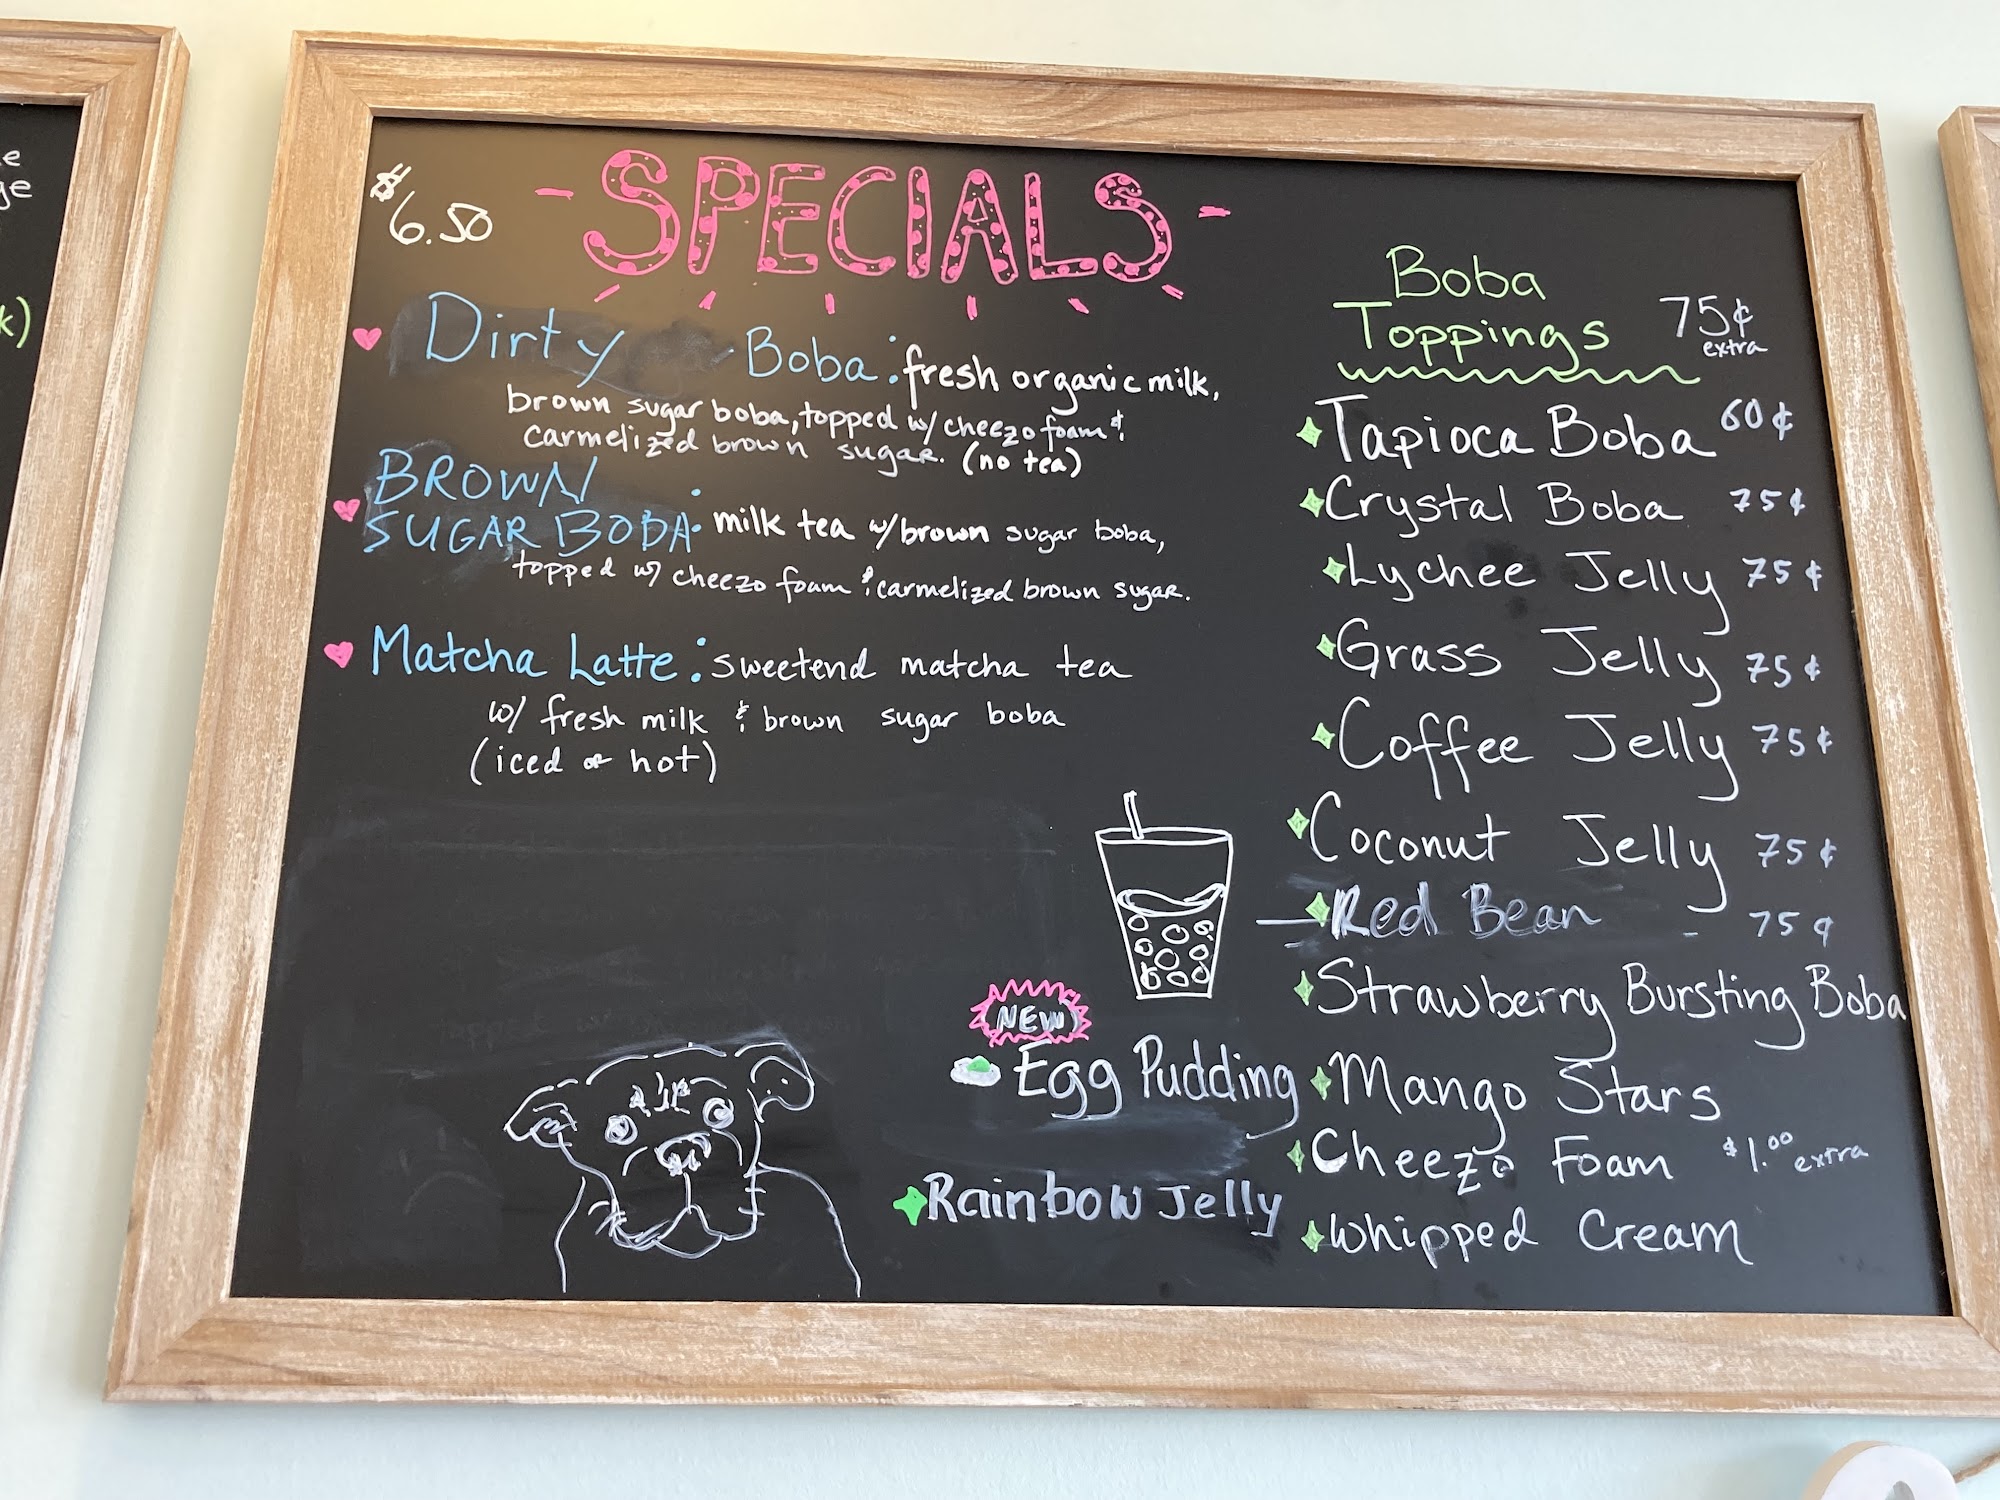 e
ge
k)
$6.50
- SPECIALS -
Dirty Boba: fresh organic milk,
brown sugar boba, topped w/ cheezo foam &
carmelized brown sugar. (no tea)
BROWN
SUGAR BOBA: milk tea w/ brown sugar boba,
topped w/ cheezo foam & carmelized brown sugar.
Matcha Latte: sweetend matcha tea
w/ fresh milk & brown sugar boba
(iced or hot)
NEW
Egg Pudding
Rainbow Jelly
Boba
Toppings 75¢
extra
Tapioca Boba 60¢
Crystal Boba 75¢
Lychee Jelly 75¢
Grass Jelly 75¢
Coffee Jelly 75¢
Coconut Jelly 75¢
Red Bean 75¢
Strawberry Bursting Boba
Mango Stars
Cheezo Foam $1.00 extra
Whipped Cream